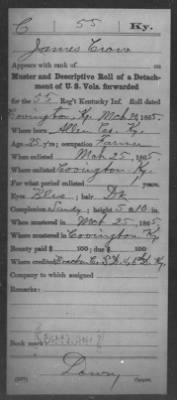 C 55 Ky.
James Crow
Appears with rank of
Muster and Descriptive Roll of a Detach-
ment of U. S. Vols. forwarded
for the 55 Reg't Kentucky Inf. Roll dated
Covington Ky. Mch 30, 1865.
Where born Allen Co. Ky.
Age 25 y'rs; occupation Farmer
When enlisted Mch 25, 1865.
Where enlisted Covington, Ky.
For what period enlisted 1 years.
Eyes Blue; hair Dk
Complexion Sandy; height 5 ft. 10 in.
When mustered in Mch 25, 1865
Where mustered in Covington Ky.
Bounty paid $ 100; due $ 100
Where credited
Company to which assigned
Remarks:
Book mark: